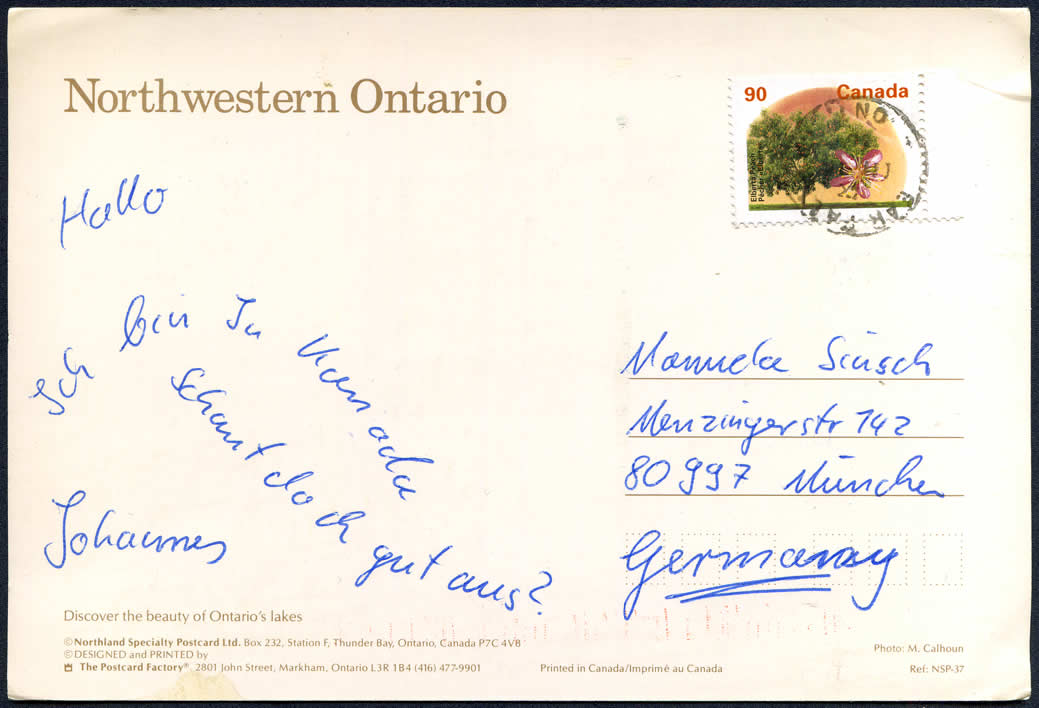 Northwestern Ontario
90 Canada
Elberta Peach
Pêcher «Elberta»
Hallo
Ich bin In Kanada
Schaut doch gut aus?
Johannes
Manuela
Menzingerstr 142
80997 München
Germany
Discover the beauty of Ontario's lakes
© Northland Specialty Postcard Ltd. Box 232, Station F, Thunder Bay, Ontario, Canada P7C 4V8
© DESIGNED and PRINTED by
The Postcard Factory®. 2801 John Street, Markham, Ontario L3R 1B4 (416) 477-9901
Printed in Canada/Imprimé au Canada
Photo: M. Calhoun
Ref: NSP-37